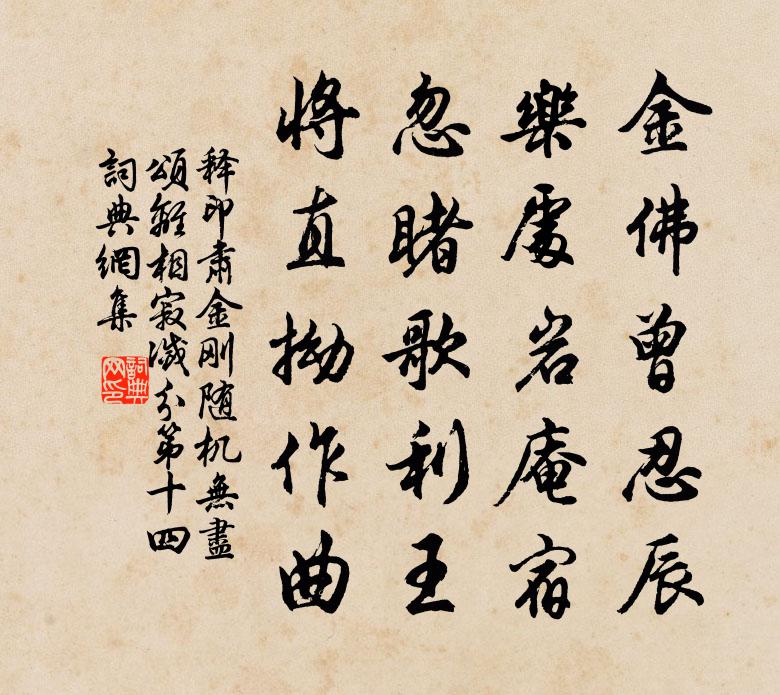 金佛曾忍辰
樂處岩庵宿
忽睹歌利王
將直拗作曲
释印肃金刚随机無盡
頌離相寂滅分第十四
詞典網集
詞典
网印